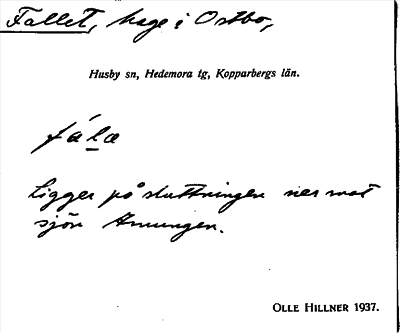 Fallet, hage i Ostbo,
Husby sn, Hedemora tg, Kopparbergs län.
fálæ
Ligger på sluttningen ner mot
sjön Amungen.
OLLE HILLNER 1937.